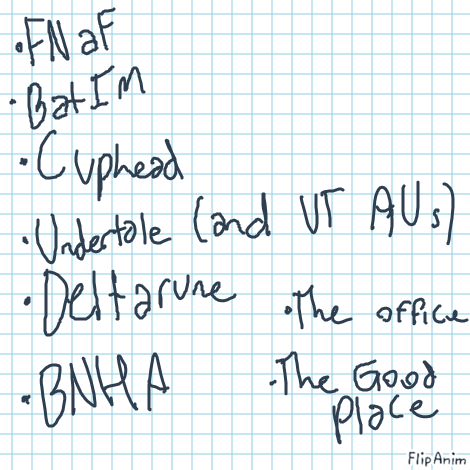 ·FNaF
·BatIM
·Cuphead
·Undertale (and UT AUs)
·Deltarune
·The office
·BNHA
·The Good
place
FlipAnim